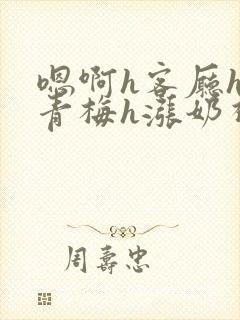 嗯啊h客厅h
青梅h涨奶
周寿忠